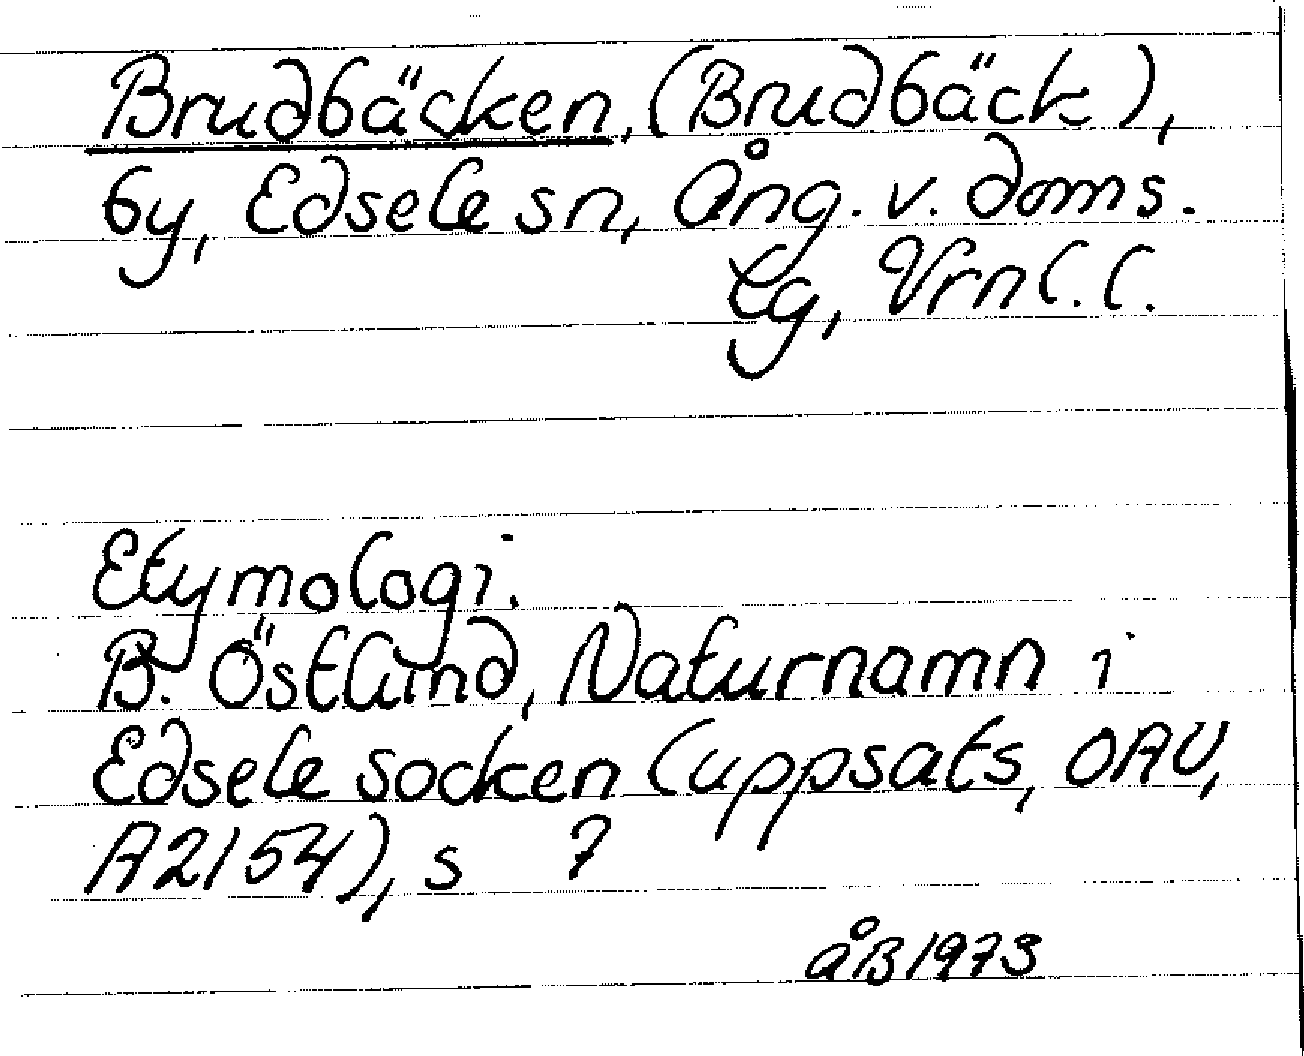 Brudbäcken, (Brudbäck),
by, Edsele sn, Ång. v. doms.
tg, Vrnl. l.
Etymologi.
B. Östlund, Naturnamn i
Edsele socken (uppsats, OAU,
A2154), s 7
åB 1973